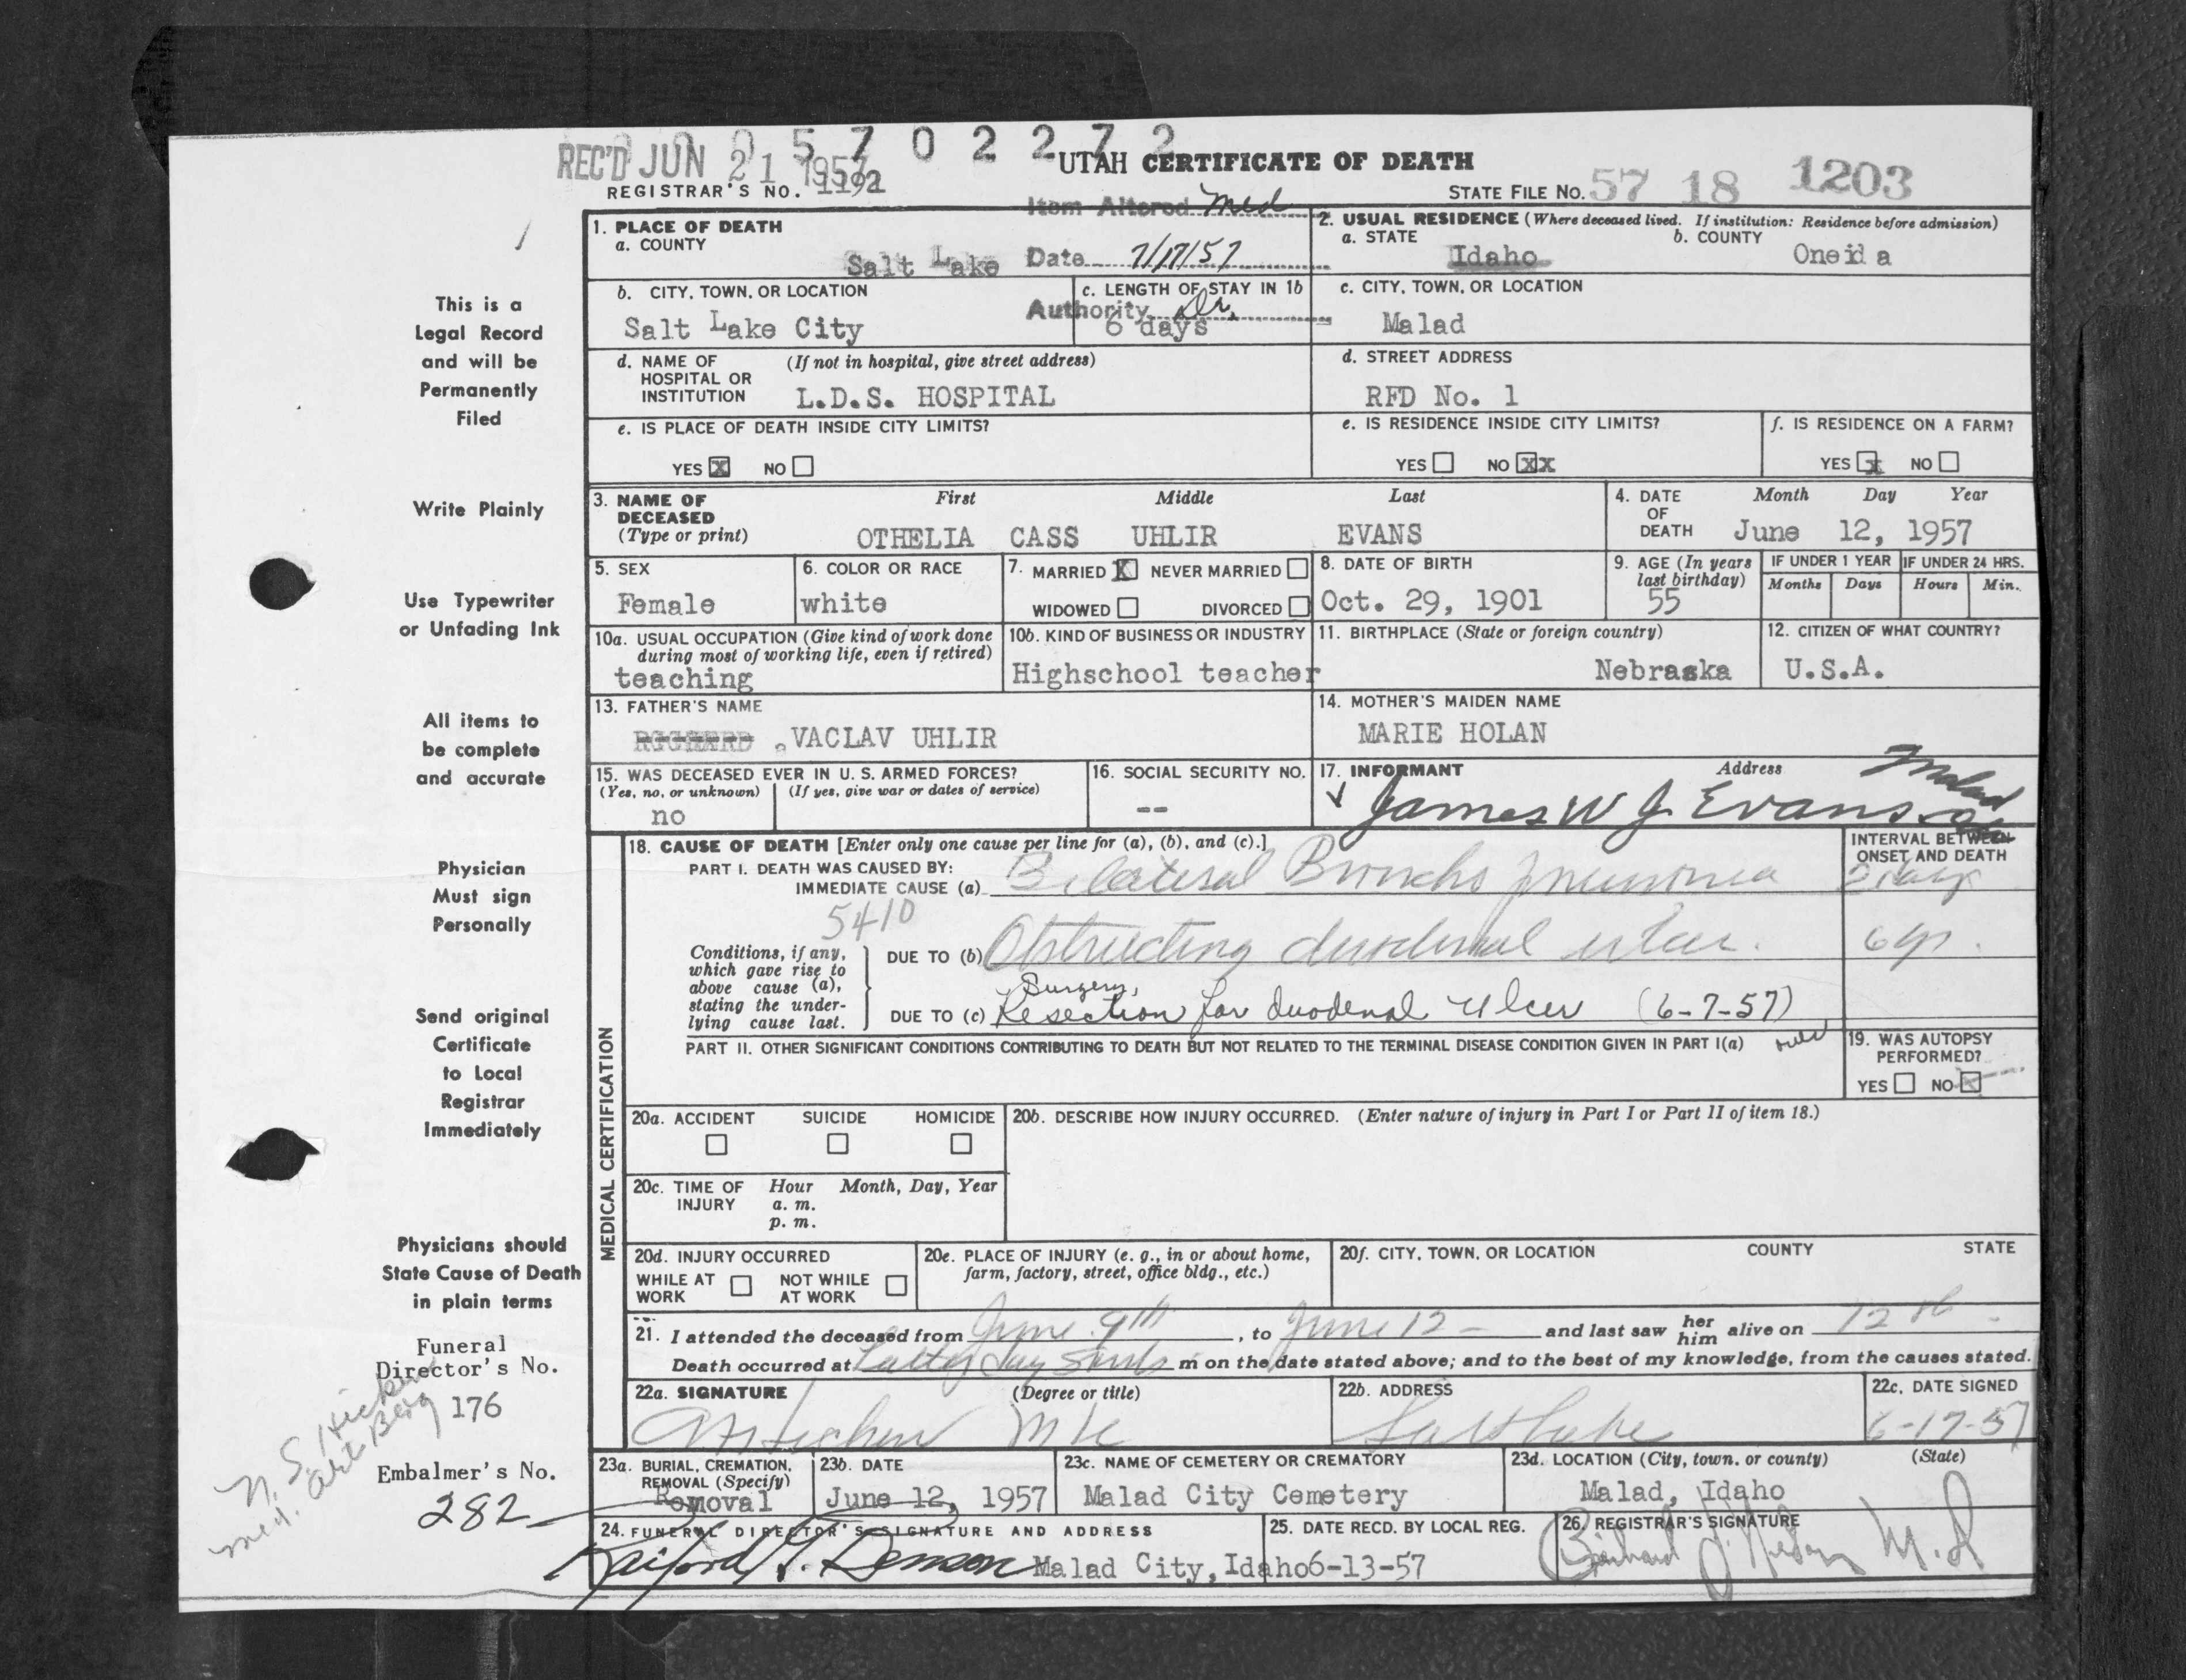 0 0 5 7 0 2 2 7 2
REC'D JUN 21 1957
UTAH CERTIFICATE OF DEATH
REGISTRAR'S NO. 1192
STATE FILE NO. 57 18 1203
Item Altered Med
Date 7/17/57
Authority Dr.
1. PLACE OF DEATH
a. COUNTY
Salt Lake
2. USUAL RESIDENCE (Where deceased lived. If institution: Residence before admission)
a. STATE b. COUNTY
Idaho Oneida
b. CITY, TOWN, OR LOCATION
Salt Lake City
c. LENGTH OF STAY IN 1b
6 days
c. CITY, TOWN, OR LOCATION
Malad
d. NAME OF (If not in hospital, give street address)
HOSPITAL OR
INSTITUTION L.D.S. HOSPITAL
d. STREET ADDRESS
RFD No. 1
e. IS PLACE OF DEATH INSIDE CITY LIMITS?
YES X NO
e. IS RESIDENCE INSIDE CITY LIMITS?
YES NO XX
f. IS RESIDENCE ON A FARM?
YES X NO
3. NAME OF First Middle Last
DECEASED
(Type or print) OTHELIA CASS UHLIR EVANS
4. DATE Month Day Year
OF
DEATH June 12, 1957
5. SEX
Female
6. COLOR OR RACE
white
7. MARRIED X NEVER MARRIED
WIDOWED DIVORCED
8. DATE OF BIRTH
Oct. 29, 1901
9. AGE (In years
last birthday)
55
IF UNDER 1 YEAR IF UNDER 24 HRS.
Months Days Hours Min.
10a. USUAL OCCUPATION (Give kind of work done
during most of working life, even if retired)
teaching
10b. KIND OF BUSINESS OR INDUSTRY
Highschool teacher
11. BIRTHPLACE (State or foreign country)
Nebraska
12. CITIZEN OF WHAT COUNTRY?
U.S.A.
13. FATHER'S NAME
VACLAV UHLIR
14. MOTHER'S MAIDEN NAME
MARIE HOLAN
15. WAS DECEASED EVER IN U. S. ARMED FORCES?
(Yes, no, or unknown) (If yes, give war or dates of service)
no
16. SOCIAL SECURITY NO.
--
17. INFORMANT Address
James W J Evans Malad
18. CAUSE OF DEATH [Enter only one cause per line for (a), (b), and (c).]
PART I. DEATH WAS CAUSED BY:
IMMEDIATE CAUSE (a) Bilateral Broncho pneumonia
INTERVAL BETWEEN
ONSET AND DEATH
2 days
5410
Conditions, if any,
which gave rise to
above cause (a),
stating the under-
lying cause last.
DUE TO (b) Obstructing duodenal ulcer.
6 yr.
Surgery,
DUE TO (c) Resection for duodenal ulcer (6-7-57)
PART II. OTHER SIGNIFICANT CONDITIONS CONTRIBUTING TO DEATH BUT NOT RELATED TO THE TERMINAL DISEASE CONDITION GIVEN IN PART I(a)
19. WAS AUTOPSY
PERFORMED?
YES NO X
MEDICAL CERTIFICATION
20a. ACCIDENT SUICIDE HOMICIDE
20b. DESCRIBE HOW INJURY OCCURRED. (Enter nature of injury in Part I or Part II of item 18.)
20c. TIME OF Hour Month, Day, Year
INJURY a. m.
p. m.
20d. INJURY OCCURRED
WHILE AT NOT WHILE
WORK AT WORK
20e. PLACE OF INJURY (e. g., in or about home,
farm, factory, street, office bldg., etc.)
20f. CITY, TOWN, OR LOCATION COUNTY STATE
21. I attended the deceased from June 9th, to June 12 and last saw her him alive on 12th
Death occurred at Latter day Saints m on the date stated above; and to the best of my knowledge, from the causes stated.
22a. SIGNATURE (Degree or title)
22b. ADDRESS
Salt Lake
22c. DATE SIGNED
6-17-57
23a. BURIAL, CREMATION,
REMOVAL (Specify)
Removal
23b. DATE
June 12, 1957
23c. NAME OF CEMETERY OR CREMATORY
Malad City Cemetery
23d. LOCATION (City, town, or county) (State)
Malad, Idaho
24. FUNERAL DIRECTOR'S SIGNATURE AND ADDRESS
Malad City, Idaho
25. DATE RECD. BY LOCAL REG.
6-13-57
26. REGISTRAR'S SIGNATURE
M.D
This is a
Legal Record
and will be
Permanently
Filed
Write Plainly
Use Typewriter
or Unfading Ink
All items to
be complete
and accurate
Physician
Must sign
Personally
Send original
Certificate
to Local
Registrar
Immediately
Physicians should
State Cause of Death
in plain terms
Funeral
Director's No.
176
Embalmer's No.
282